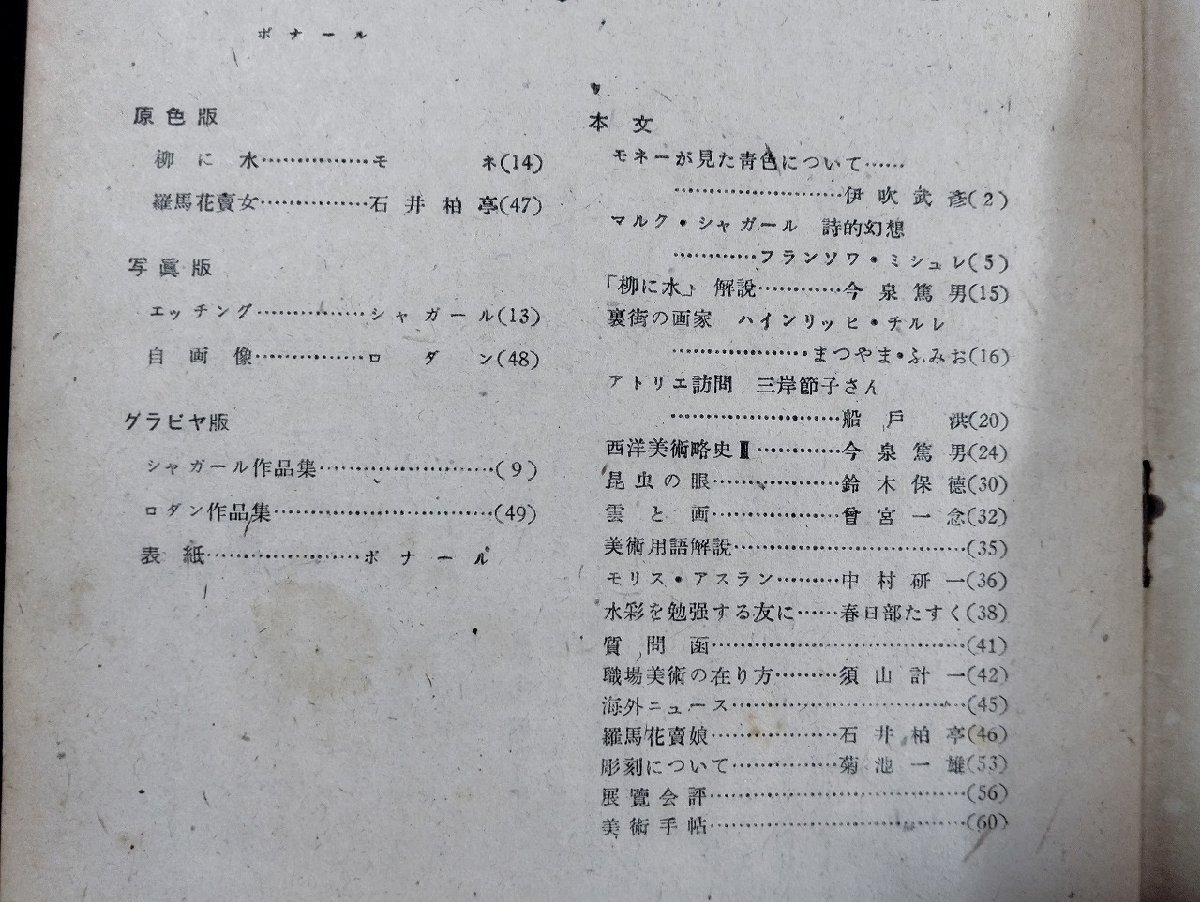 ボナール
原色版
柳に水……………モネ(14)
羅馬花賣女……………石井柏亭(47)
写眞版
エッチング……………シャガール(13)
自画像……………ロダン(48)
グラビヤ版
シャガール作品集……………………(9)
ロダン作品集…………………………(49)
表紙…………………ボナール
本文
モネーが見た靑色について……
……………………伊吹武彦(2)
マルク・シャガール 詩的幻想
…………フランソワ・ミシュレ(5)
「柳に水」解説…………今泉篤男(15)
裏街の画家 ハインリッヒ・チルレ
…………………まつやま・ふみお(16)
アトリエ訪問 三岸節子さん
……………………船戸洪(20)
西洋美術略史Ⅱ…………今泉篤男(24)
昆虫の眼………………鈴木保德(30)
雲と画………………曾宮一念(32)
美術用語解説……………………………(35)
モリス・アスラン………中村研一(36)
水彩を勉强する友に……春日部たすく(38)
質問函………………………………(41)
職場美術の在り方………須山計一(42)
海外ニュース……………………………(45)
羅馬花賣娘………………石井柏亭(46)
彫刻について……………菊池一雄(53)
展覽会評………………………………(56)
美術手帖………………………………(60)